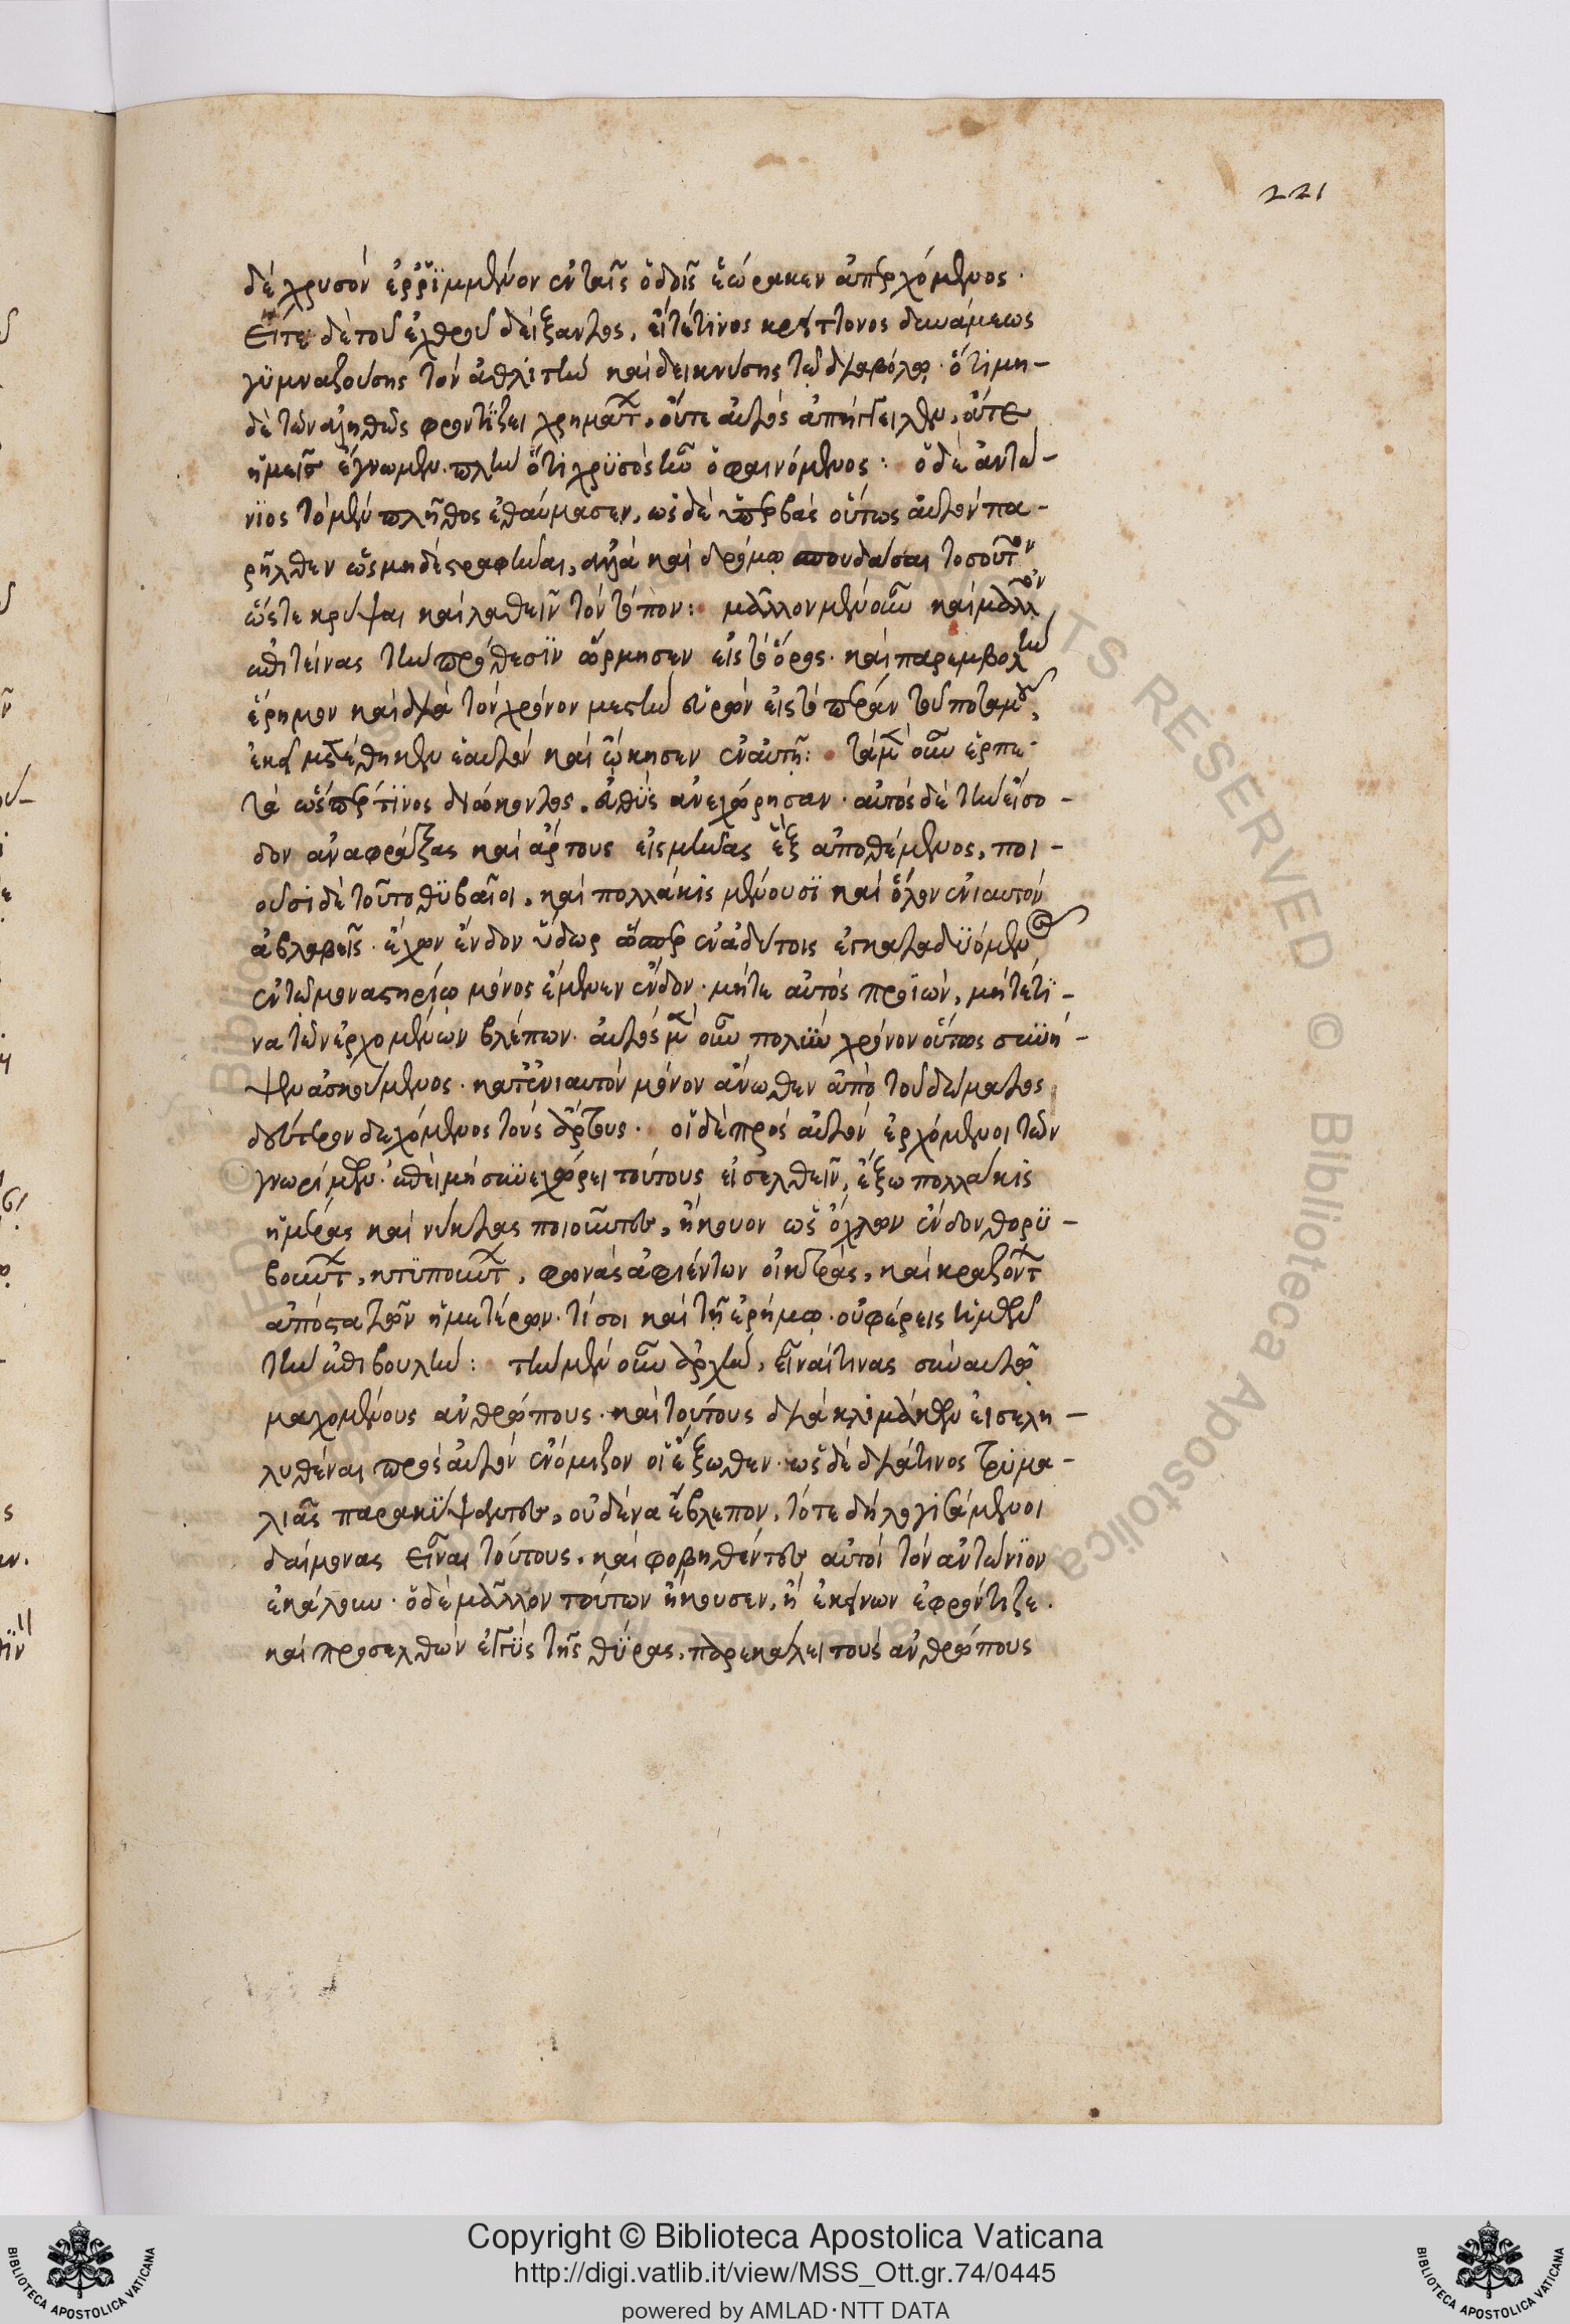 221
δὲ χρυσὸν ἐρριμμένον ἐν ταῖς ὁδοῖς ἑώρακεν ἀπερχόμενος·
Εἴτε δὲ τοῦ ἐχθροῦ δείξαντος, εἴτέ τινος κρείττονος δυνάμεως
γυμναζούσης τὸν ἀθλητὴν καὶ δεικνύσης τῷ διαβόλῳ· ὅτι μη-
δὲ τῶν ἀληθῶς φροντίζει χρημάτων, οὔτε αὐτὸς ἀπήγγειλεν, οὔτε
ἡμεῖς ἔγνωμεν. πλὴν ὅτι χρυσὸς ἦν ὁ φαινόμενος: ὁ δὲ ἀντώ-
νιος τὸ μὲν πλῆθος ἐθαύμασεν, ὡς δὲ ὑπερβὰς οὕτως αὐτὸν πα-
ρῆλθεν ὡς μηδὲ στραφῆναι, ἀλλὰ καὶ δρόμῳ σπουδάσαι τοσοῦτον
ὥστε κρύψαι καὶ λαθεῖν τὸν τόπον: μᾶλλον μὲν οὖν καὶ μᾶλλον
ἐπιτείνας τὴν πρόθεσιν ὥρμησεν εἰς τὸ ὄρος. καὶ παρεμβολὴν
ἔρημον καὶ διὰ τὸν χρόνον μεστὴν εὑρὼν εἰς τὸ πέραν τοῦ ποταμοῦ,
ἐκεῖ μετέθηκεν ἑαυτὸν καὶ ᾤκησεν ἐν αὐτῇ: τὰ μὲν οὖν ἑρπε-
τὰ ὥσπέρ τινος διώκοντος, εὐθὺς ἀνεχώρησαν. αὐτὸς δὲ τὴν εἴσο-
δον ἀναφράξας καὶ ἄρτους εἰς μῆνας ἓξ ἀποθέμενος, ποι-
οῦσι δὲ τοῦτο θυβαῖοι, καὶ πολλάκις μένουσι καὶ ὅλον ἐνιαυτὸν
ἀβλαβεῖς. ἔχων ἔνδον ὕδωρ ὥσπερ ἐν ἀδύτοις ἐγκαταδυόμενος
ἐν τῷ μοναστηρίῳ μόνος ἔμενεν ἔνδον. μήτε αὐτὸς προϊὼν, μήτέ τι-
να τῶν ἐρχομένων βλέπων. αὐτὸς μὲν οὖν πολὺν χρόνον οὕτως
ἀσκούμενος. κατ' ἐνιαυτὸν μόνον ἄνωθεν ἀπὸ τοῦ δώματος
δεύτερον δεχόμενος τοὺς ἄρτους. οἱ δὲ πρὸς αὐτὸν ἐρχόμενοι τῶν
γνωρίμων. ἐπεὶ μὴ συνεχώρει τούτους εἰσελθεῖν, ἔξω πολλάκις
ἡμέρας καὶ νύκτας ποιοῦντες, ἤκουον ὡς ὄχλων ἔνδον θορυ-
βούντων, κτυπούντων, φωνὰς ἀφιέντων οἰκτρὰς, καὶ κραζόντων
ἀπόστα τῶν ἡμετέρων. τί σοι καὶ τῇ ἐρήμῳ. οὐ φέρεις ἡμῶν
τὴν ἐπιβουλὴν: τὴν μὲν οὖν ἀρχὴν, εἶναί τινας σὺν αὐτῷ
μαχομένους ἀνθρώπους. καὶ τούτους διὰ κλιμάκων εἰσελη-
λυθέναι πρὸς αὐτὸν ἐνόμιζον οἱ ἔξωθεν. ὡς δὲ διά τινος τρυμα-
λιᾶς παρακύψαντες, οὐδένα ἔβλεπον, τότε δὴ λογισάμενοι
δαίμονας εἶναι τούτους. καὶ φοβηθέντες αὐτοὶ τὸν ἀντώνιον
ἐκάλουν. ὁ δὲ μᾶλλον τούτων ἤκουσεν, ἢ ἐκείνων ἐφρόντιζε.
καὶ προσελθὼν ἐγγὺς τῆς θύρας, παρεκάλει τοὺς ἀνθρώπους
Copyright © Biblioteca Apostolica Vaticana
http://digi.vatlib.it/view/MSS_Ott.gr.74/0445
powered by AMLAD·NTT DATA
BIBLIOTECA APOSTOLICA VATICANA
BIBLIOTECA APOSTOLICA VATICANA